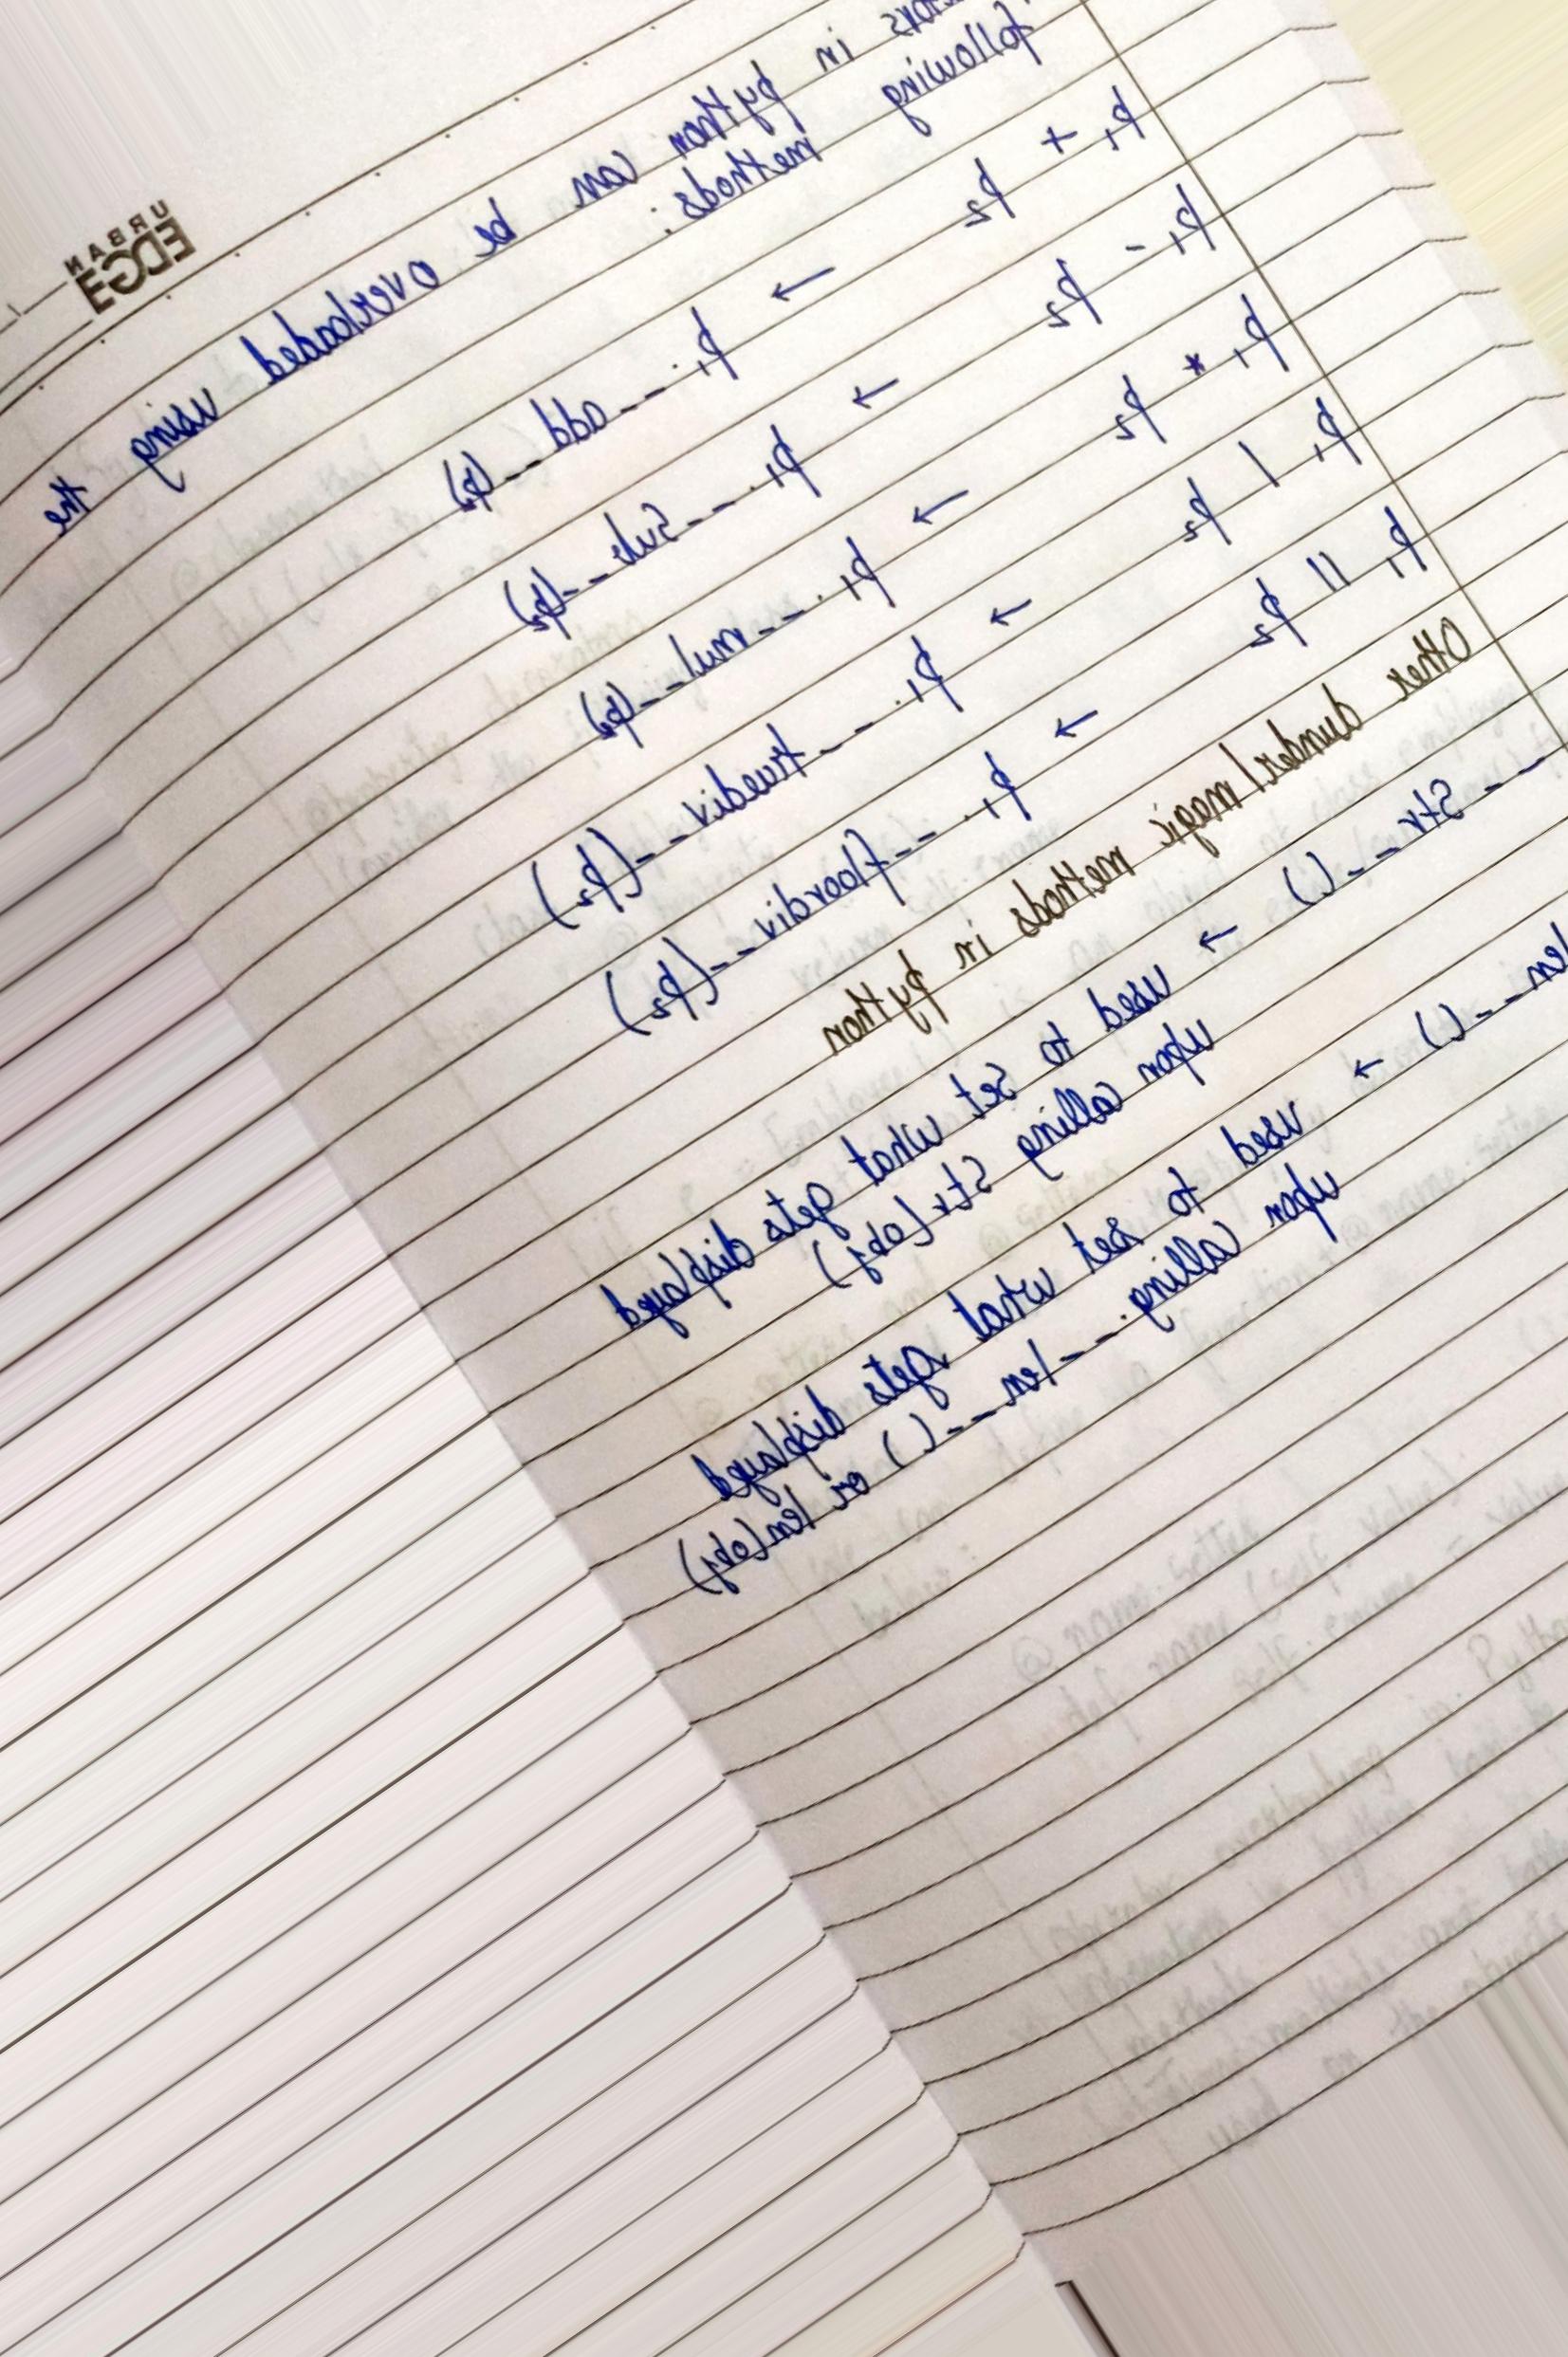 URBAN
EDGE
in python can be overloaded using the
following methods:
p1 + p2 → p1.__add__(p2)
p1 - p2 → p1.__sub__(p2)
p1 * p2 → p1.__mul__(p2)
p1 / p2 → p1.__truediv__(p2)
p1 // p2 → p1.__floordiv__(p2)
Other dunder/magic methods in python
__str__() → used to set what gets displayed
upon calling str(obj)
len__() → used to set what gets displayed
upon calling .__len__() or len(obj)